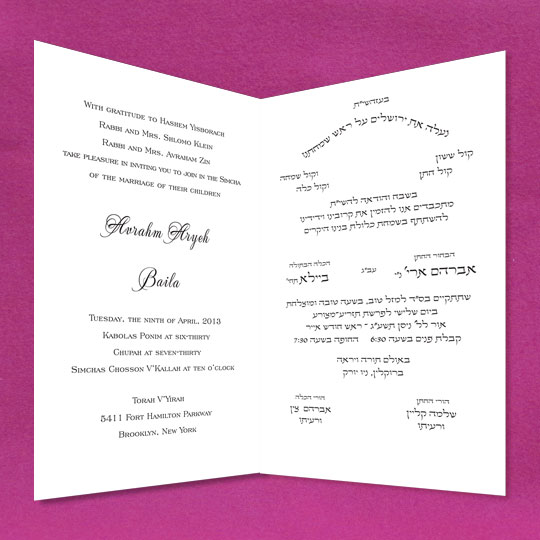 With gratitude to Hashem Yisborach
Rabbi and Mrs. Shlomo Klein
Rabbi and Mrs. Avraham Zin
take pleasure in inviting you to join in the Simcha
of the marriage of their children
Avrahm Aryeh
Baila
Tuesday, the ninth of April, 2013
Kabolas Ponim at six-thirty
Chupah at seven-thirty
Simchas Chosson V'Kallah at ten o'clock
Torah V'Yirah
5411 Fort Hamilton Parkway
Brooklyn, New York
בעזהשי"ת
נעלה את ירושלים על ראש שמחתנו
קול ששון
קול חתן
וקול שמחה
וקול כלה
בשבח והודאה להשי"ת
מתכבדים אנו להזמין את קרובינו וידידינו
להשתתף בשמחת כלולת בנינו היקרים
הבחור החתן
אברהם ארי' ני'
עב"ג
הכלה הבתולה
ביילא תחי'
שתתקיים בס"ד למזל טוב, בשעה טובה ומוצלחת
ביום שלישי לפרשת תזריע-מצורע
אור לל' ניסן תשע"ג - ראש חודש אייר
קבלת פנים בשעה 6:30 החופה בשעה 7:30
באולם תורה ויראה
ברוקלין, ניו יורק
הורי החתן
שלמה קליין
ורעיתו
הורי הכלה
אברהם צין
ורעיתו